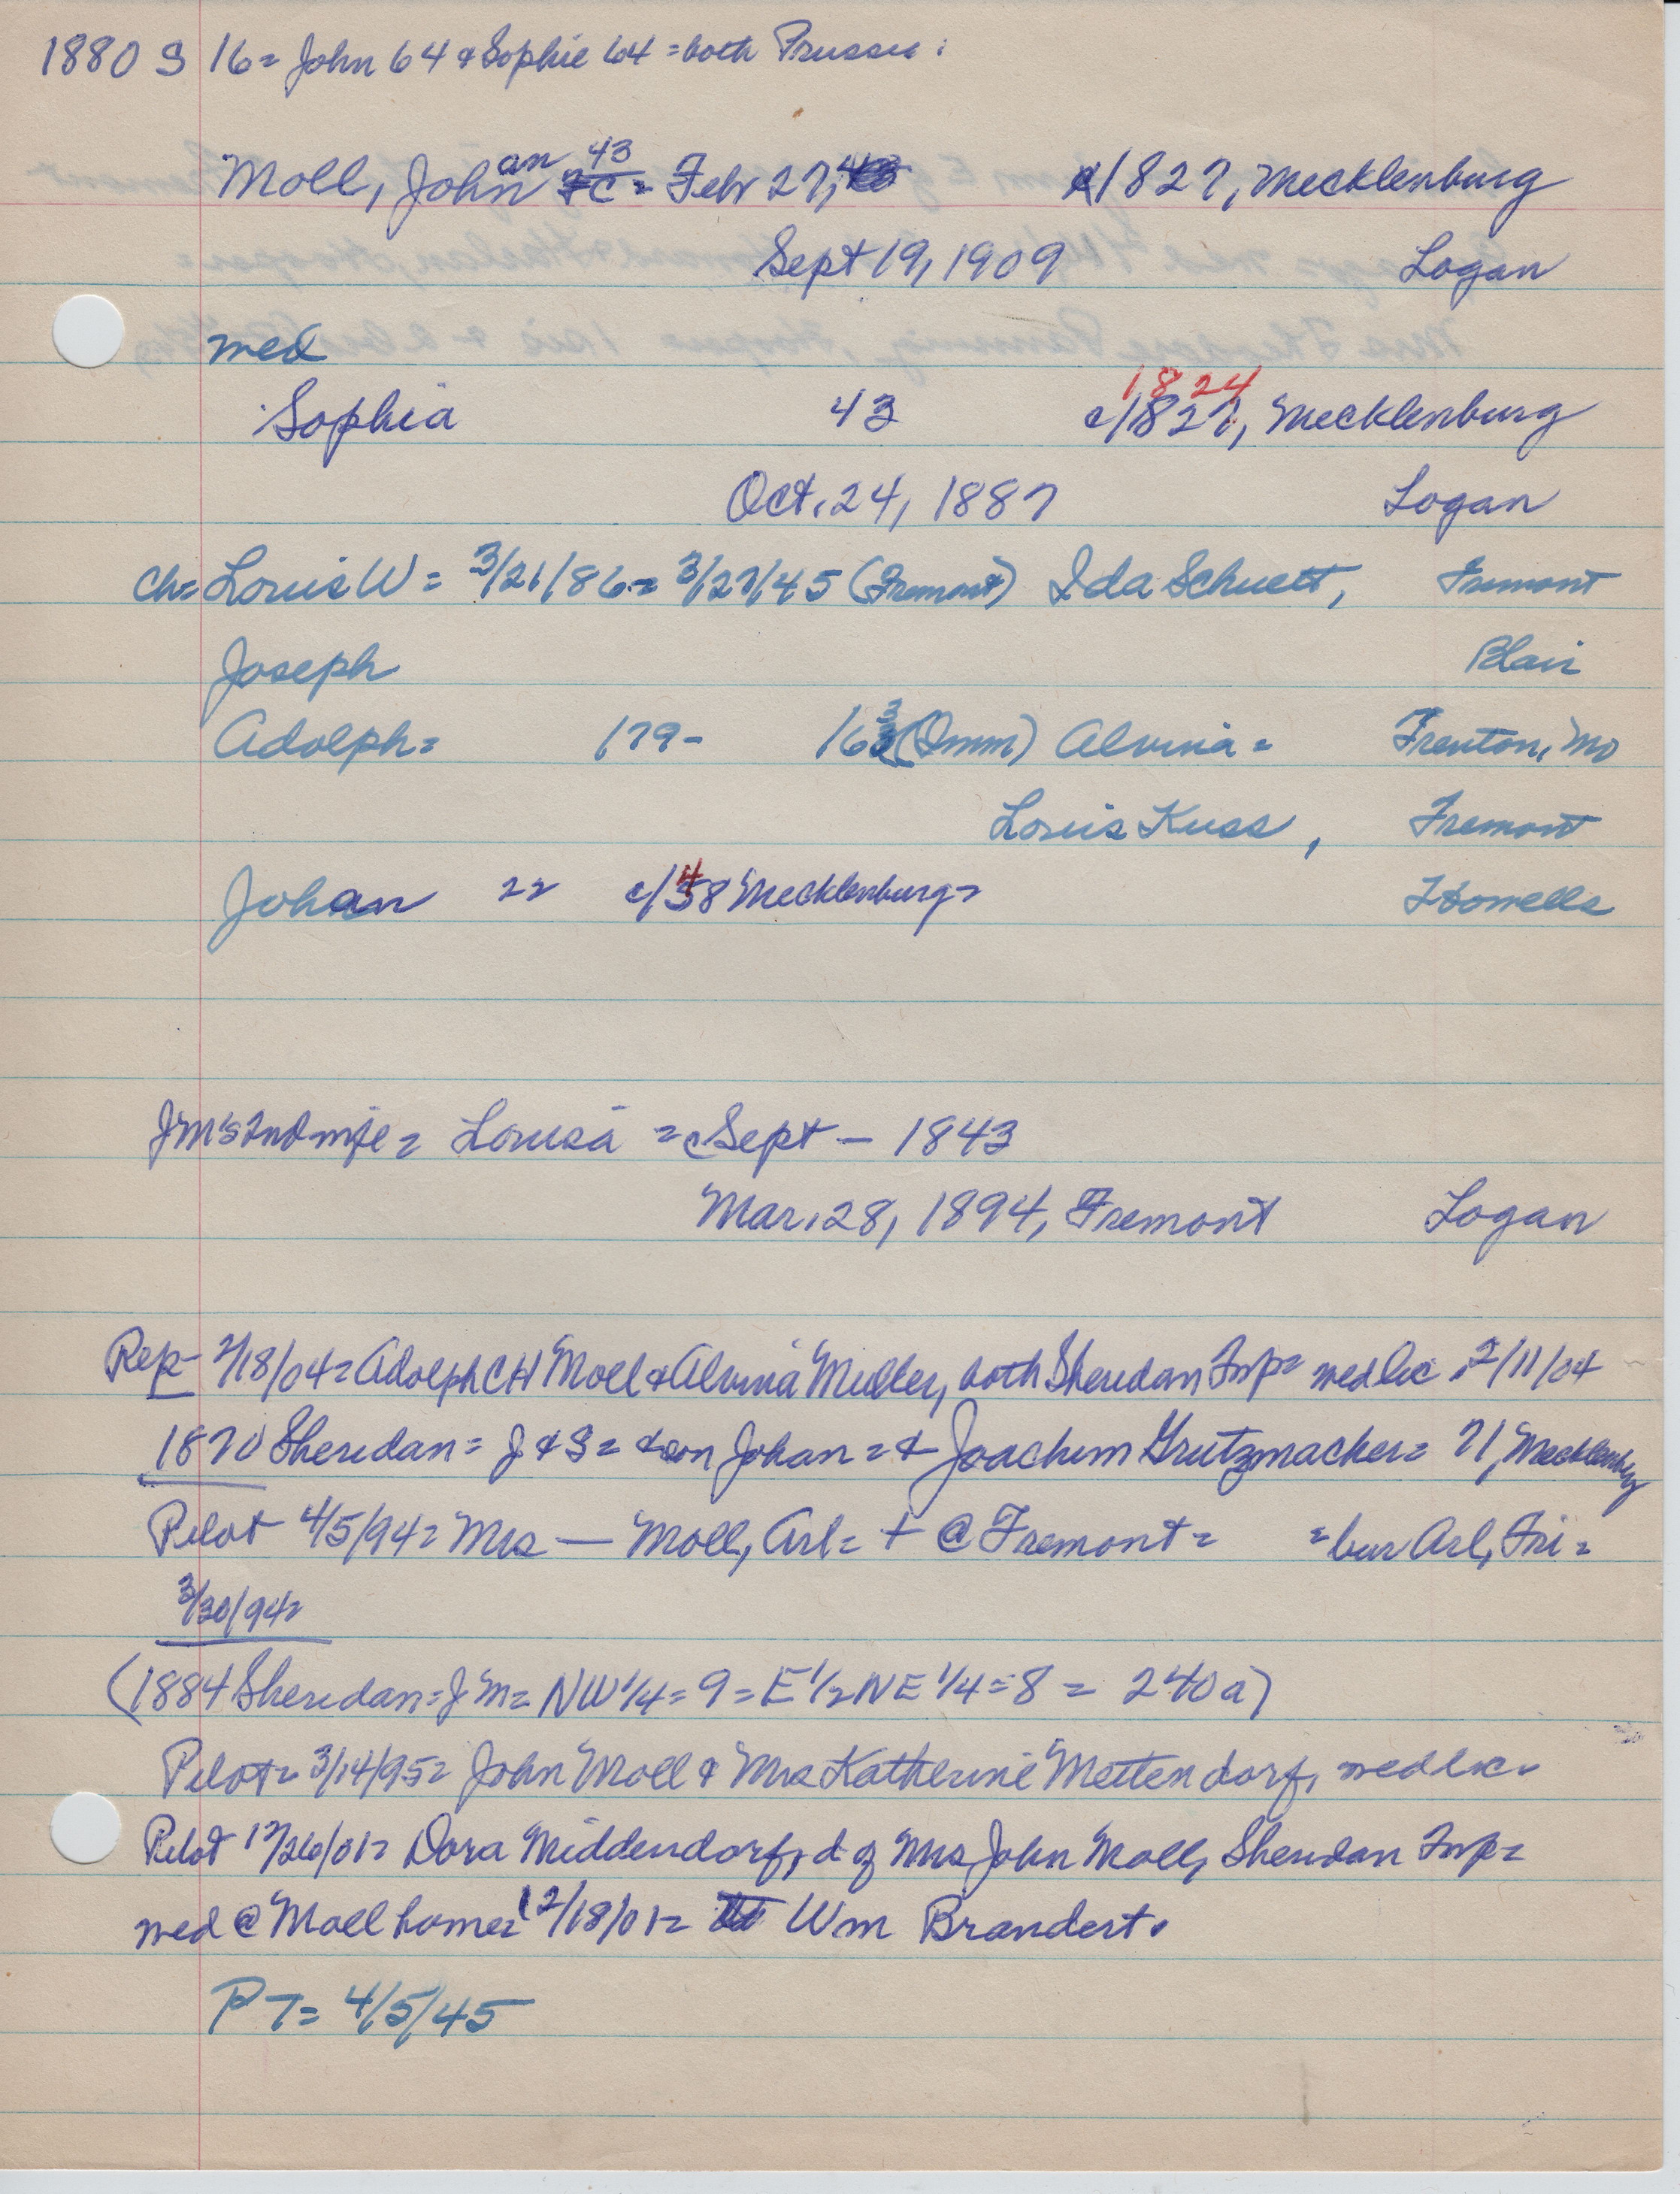 1880 S 16= John 64 & Sophie 64 = both Prussia:
Moll, Johan 43 = Febr 27, c/1827, Mecklenburg
Sept 19, 1909 Logan
med
Sophia 43 c/1827, Mecklenburg 1824
Oct. 24, 1887 Logan
Ch= Louis W = 3/21/86= 3/27/45 (Fremont) Ida Schuett, Fremont
Joseph Blair
Adolph= 179- 163 (Omm) Alvina= Trenton, Mo
Louis Kuss, Fremont
Johan 22 c/48 Mecklenburg= Howells
JM's 2nd wife= Louisa = c Sept - 1843
Mar. 28, 1894, Fremont Logan
Rep- 2/18/04= Adolph CH Moll & Alvina Muller, both Sheridan Twp= wed lic 2/11/04
1870 Sheridan= J & S= & son Johan= & Joachim Grutzmacher= 71, Mecklenburg
Pilot 4/5/94= Mrs — Moll, Arl= + @ Fremont= =bur Arl, Fri=
3/30/94=
(1884 Sheridan=JM= NW 1/4=9=E 1/2 NE 1/4=8= 240a)
Pilot= 3/14/95= John Moll & Mrs Katherine Mettendorf, wed lic.
Pilot 12/26/01= Dora Middendorf, d of Mrs John Moll, Sheridan Twp=
wed @ Moll home= 12/18/01= Wm Brandert.
PT= 4/5/45